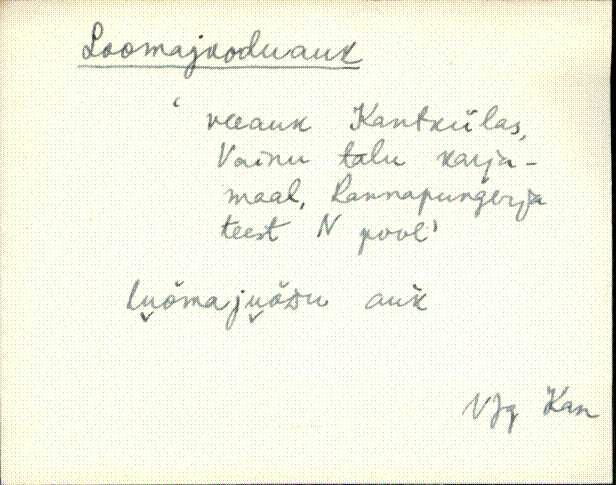 Loomajooduauk
'veeauk Kantkülas,
Vainu talu karja-
maal, Rannapungerja
teest N pool'
lu̬ŏmaju̬ŏᴅu auk̆
VJg Kan